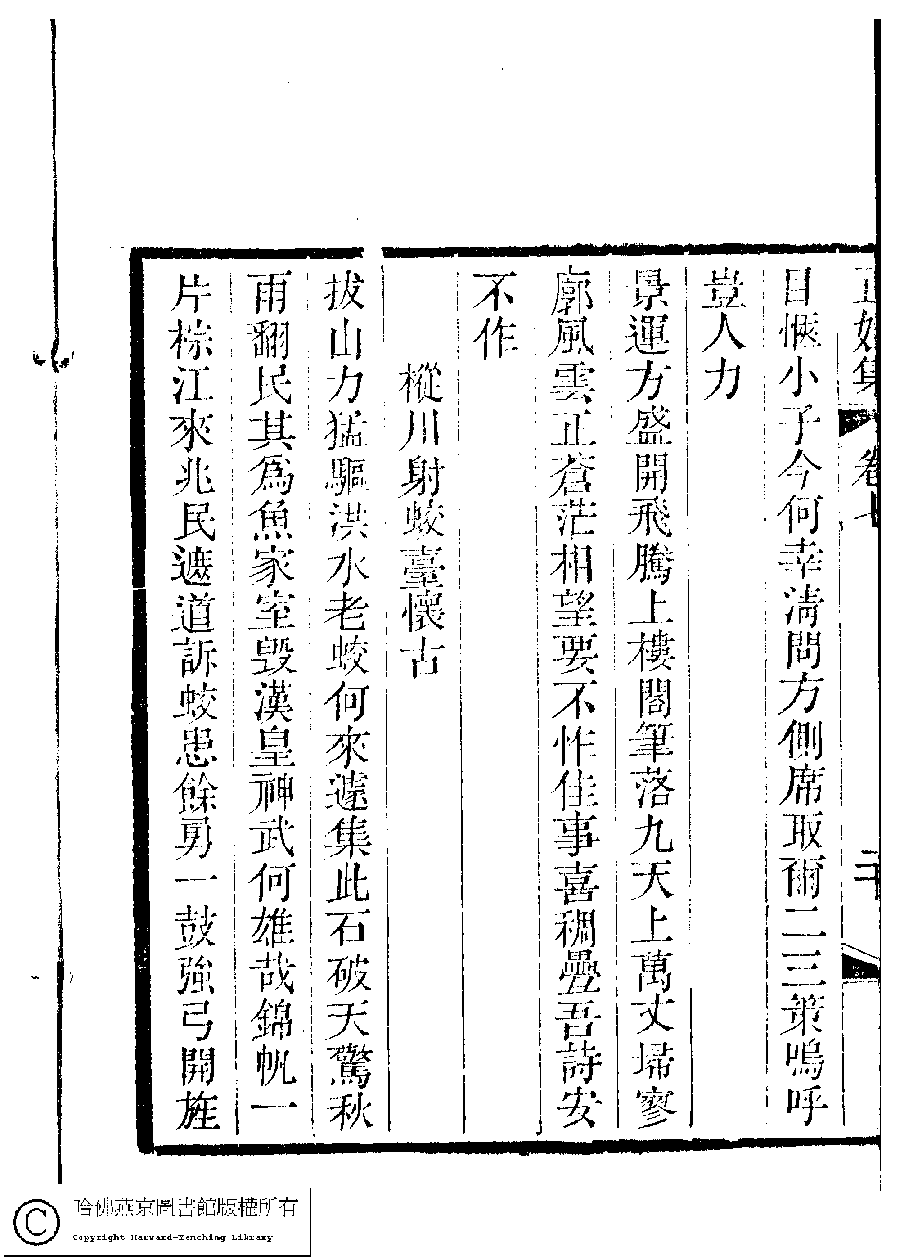 正始集 卷七 二十
目愜小子今何幸清問方側席取爾二三策嗚呼
豈人力
景運方盛開飛騰上樓閣筆落九天上萬丈埽寥
廓風雲正蒼茫相望要不怍佳事喜稠疊吾詩安
不作
樅川射蛟臺懷古
拔山力猛驅洪水老蛟何來遽集此石破天驚秋
雨翻民其爲魚家室毀漢皇神武何雄哉錦帆一
片樅江來兆民遮道訴蛟患餘勇一鼓強弓開旌
哈佛燕京圖書館版權所有
Copyright Harvard-Yenching Library